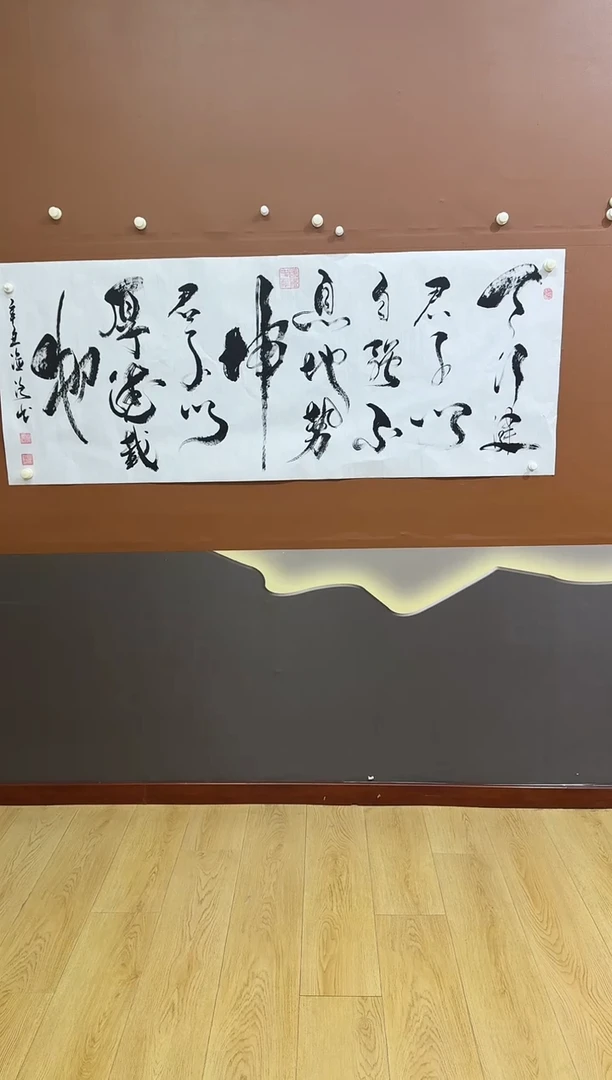 天行健
君子以
自强不
息地势
坤
君子以
厚德载
物
辛丑